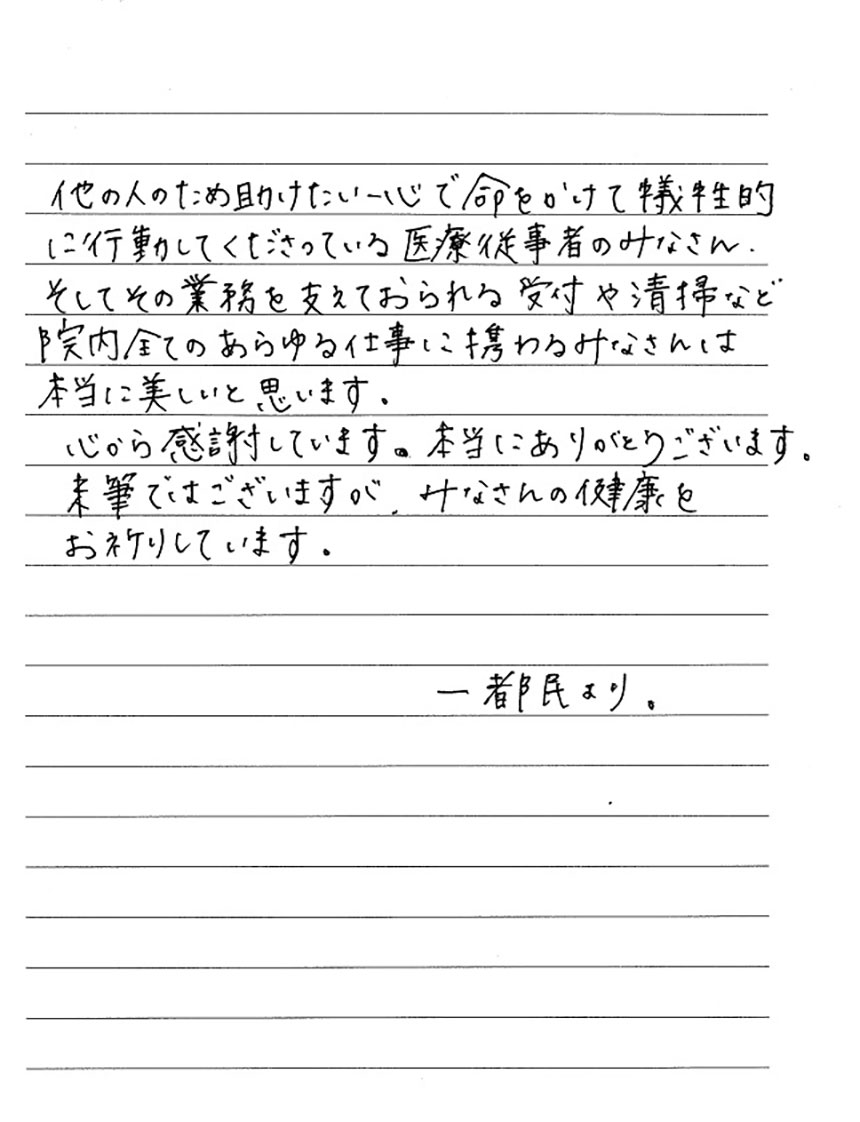 他の人のため助けたい一心で命をかけて犠牲的
に行動してくださっている医療従事者のみなさん、
そしてその業務を支えておられる受付や清掃など
院内全てのあらゆる仕事に携わるみなさんは
本当に美しいと思います。
心から感謝しています。本当にありがとうございます。
末筆ではございますが、みなさんの健康を
お祈りしています。
一都民より。